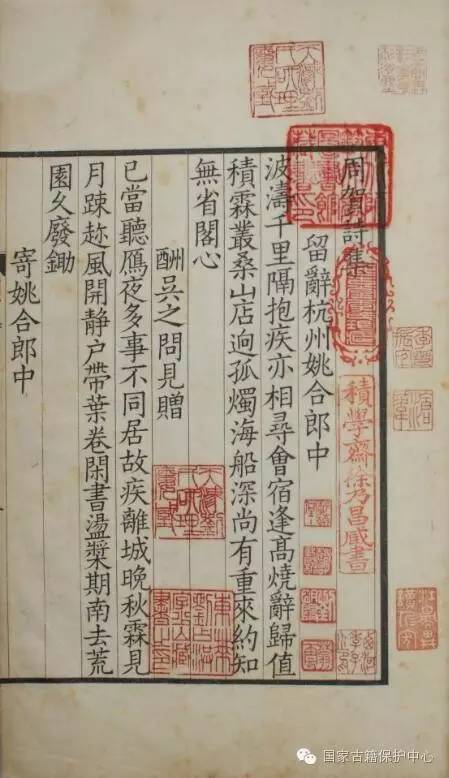 周賀詩集
積學齋徐乃昌藏書
留辭杭州姚合郎中
波濤千里隔抱疾亦相尋會宿逢高燒辭歸值
積霖叢桑山店逈孤燭海船深尚有重來約知
無省閣心
酬吳之問見贈
已當聽鴈夜多事不同居故疾離城晚秋霖見
月踈趂風開静戶帶葉卷閑書盪槳期南去荒
園久廢鋤
寄姚合郎中
国家古籍保护中心